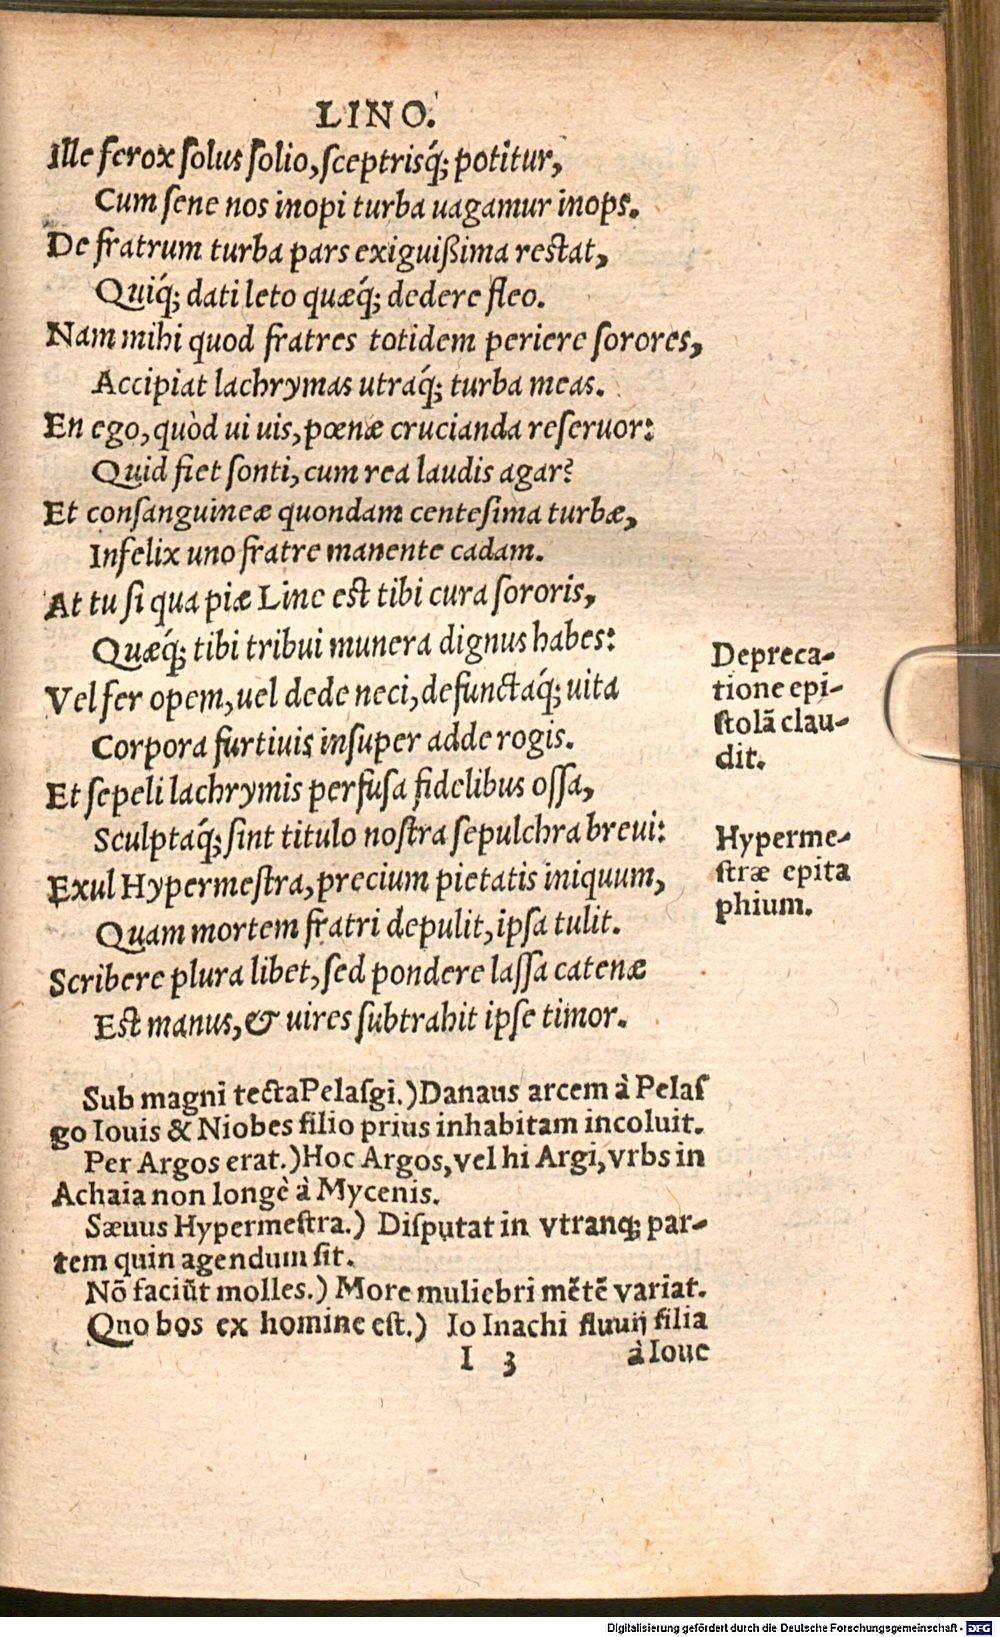 LINO.
Ille ferox solus solio, sceptrisq́; potitur,
Cum sene nos inopi turba uagamur inops.
De fratrum turba pars exiguißima restat,
Quiq́; dati leto quæq́; dedere fleo.
Nam mihi quod fratres totidem periere sorores,
Accipiat lachrymas utraq́; turba meas.
En ego, quòd ui uis, pœnæ crucianda reseruor:
Quid fiet sonti, cum rea laudis agar?
Et consanguineæ quondam centesima turbæ,
Infelix uno fratre manente cadam.
At tu si qua piæ Line est tibi cura sororis,
Quæq́; tibi tribui munera dignus habes:
Vel fer opem, uel dede neci, defunctaq́; uita
Corpora furtiuis insuper adde rogis.
Et sepeli lachrymis perfusa fidelibus ossa,
Sculptaq́; sint titulo nostra sepulchra breui:
Exul Hypermestra, precium pietatis iniquum,
Quam mortem fratri depulit, ipsa tulit.
Scribere plura libet, sed pondere lassa catenæ
Est manus, & uires subtrahit ipse timor.
Depreca-
tione epi-
stolā clau-
dit.
Hyperme-
stræ epita
phium.
Sub magni tecta Pelasgi.) Danaus arcem à Pelas
go Iouis & Niobes filio prius inhabitam incoluit.
Per Argos erat.) Hoc Argos, vel hi Argi, vrbs in
Achaia non longè à Mycenis.
Sæuus Hypermestra.) Disputat in vtranq; par-
tem quin agendum sit.
Nō faciūt molles.) More muliebri mētē variat.
Quo bos ex homine est.) Io Inachi fluuij filia
I 3 à Ioue
Digitalisierung gefördert durch die Deutsche Forschungsgemeinschaft - DFG